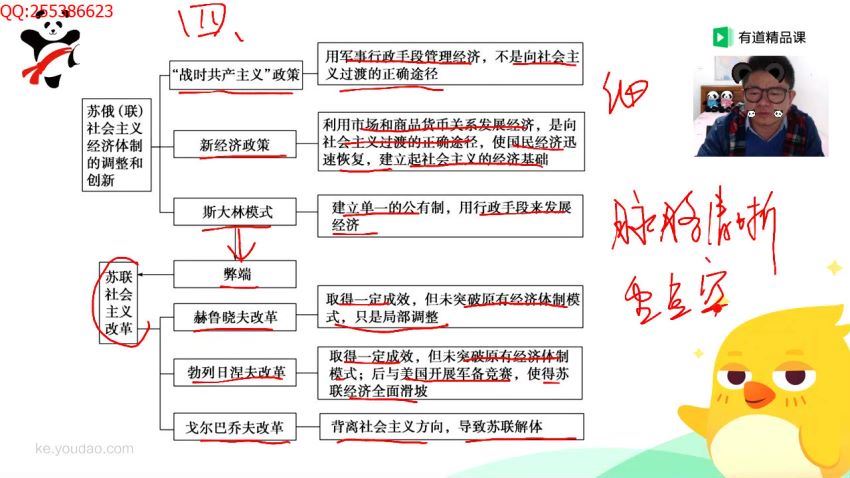 QQ:255386623
四、
有道精品课
苏俄(联)
社会主义
经济体制
的调整和
创新
“战时共产主义”政策
用军事行政手段管理经济，不是向社会主
义过渡的正确途径
新经济政策
利用市场和商品货币关系发展经济，是向
社会主义过渡的正确途径，使国民经济迅
速恢复，建立起社会主义的经济基础
斯大林模式
建立单一的公有制，用行政手段来发展
经济
细
脉络清晰
重点突
苏联
社会
主义
改革
弊端
赫鲁晓夫改革
取得一定成效，但未突破原有经济体制模
式，只是局部调整
勃列日涅夫改革
取得一定成效，但未突破原有经济体制
模式；后与美国开展军备竞赛，使得苏
联经济全面滑坡
戈尔巴乔夫改革
背离社会主义方向，导致苏联解体
ke.youdao.com